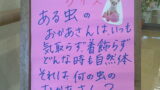 クイズ
ある虫の
おかあさんはいつも
気取らず着飾らず
どんな時も自然体
それは何の虫の
おかあさん?